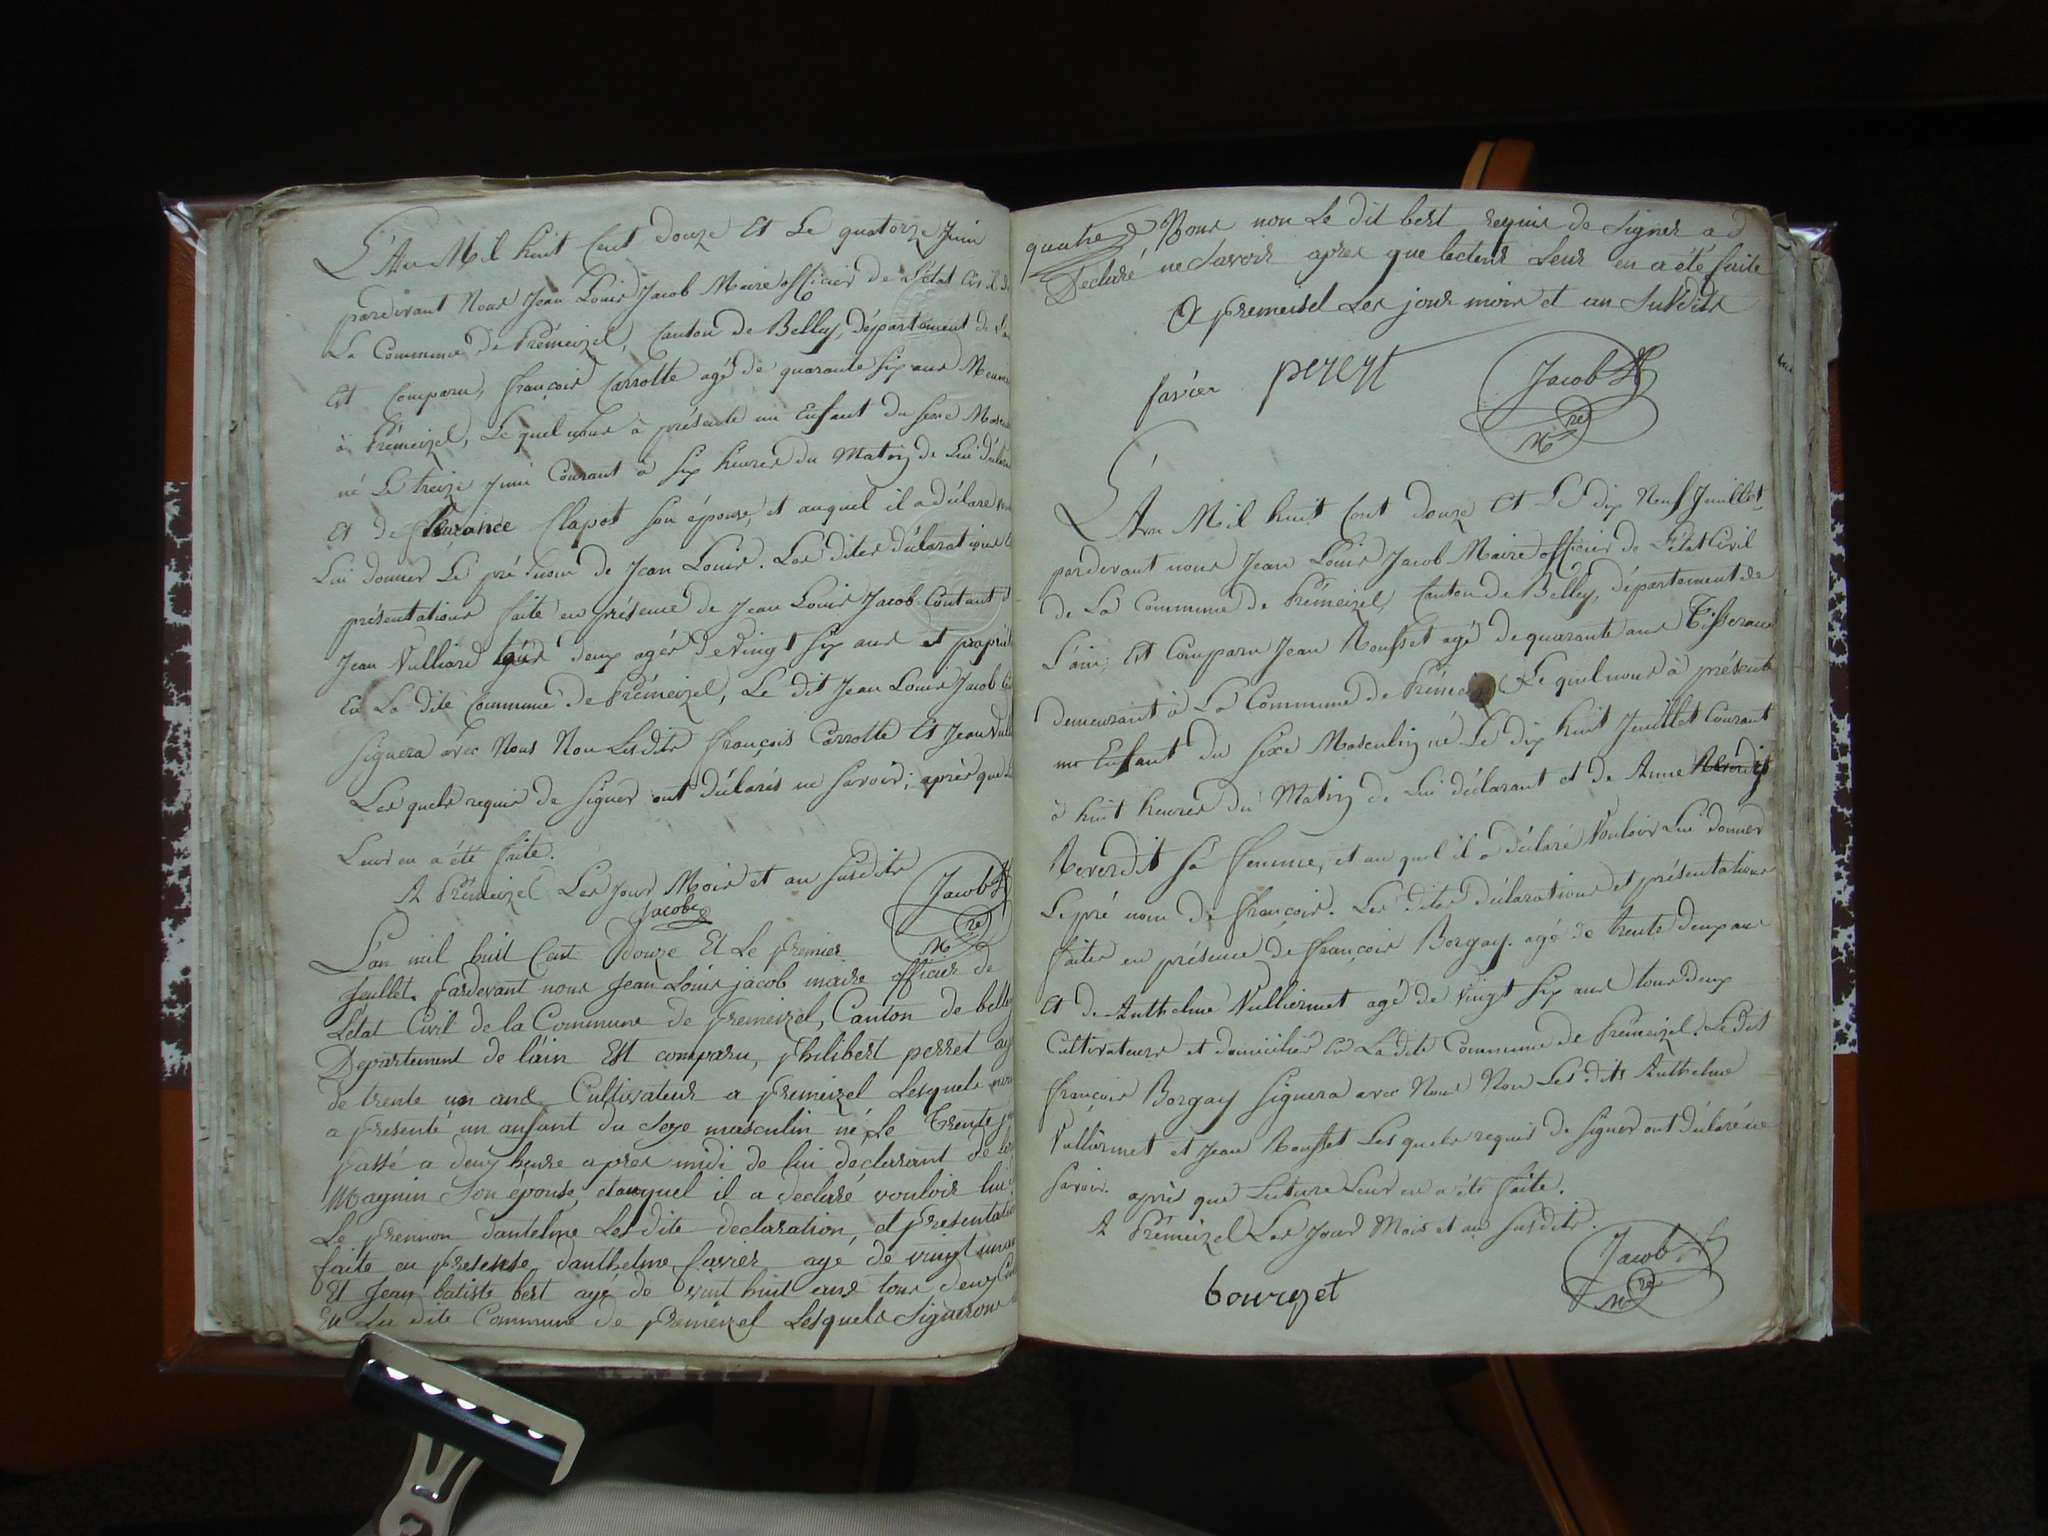 L'An Mil huit Cent douze Et Le quatorze Juin
pardevant Nous Jean Louis Jacob Maire officier de L'état Civil de
La Commune de Prémeizel, Canton de Belley, département de L'ain
Est Comparu, françois Carrotte agé de quarante six ans
à Prémeizel, Lequel nous à présenté un Enfant du sexe Masculin
né Le treize Juin Courant à six heures du Matin de Lui déclarant
Et de Clapot son épouse, et auquel il a déclaré
Lui donner Le pré nom de Jean Louis. Les dites déclarations
présentations faite en présence de Jean Louis Jacob Contant
Jean Vulliard deux agés de Vingt six ans et
En La dite Commune de Prémeizel, Le dit Jean Louis Jacob
signera avec Nous Non Lesdits françois Carrotte Et Jean
Les quels requis de signer ont déclarés ne savoir; après que
Leur en a été faite.
A Prémeizel Les Jour Mois et an susdits
Jacob
Jacob
L'an mil huit Cent Douze Et Le premier
Jeullet. pardevant nous Jean Louis jacob maire officier de
L'état Civil de la Commune de premeizel, Canton de belley
Departement de l'ain Est comparu, philibert perret
de trente un ans Cultivateur a premeizel Lesquels
a presenté un anfant du sexe masculin né Le Trente
passé a deux heure apres midi de lui declarant
Magnin Son épouse, etauquel il a declaré vouloir lui
Le prennon dantelme Les dite declaration, et presentation
faite en presense danthelme favier age de vingt
Et Jean batiste bert agé de vint huit ans tous deux
En La dite Commune de premeizel Lesquels Signeront
quatre Nous non Le dit bert requis de signer a d
Declaré ne Savoir apres que lecture leur en a été faite
A premeisel Les jour mois et an Susdits
favier perert Jacob
L'An Mil huit Cent douze Et Le dix Neuf Juillet
pardevant nous Jean Louis Jacob Maire officier de L'état Civil
de La Commune de Prémeizel, Canton de Belley, département de
L'ain, Est Comparu Jean Rousset agé de quarante ans Tisserand
demeurant à La Commune de Le quel nous à présenté
un Enfant du sexe Masculin né Le dix huit Juillet Courant
à huit heures du Matin de Lui déclarant et de Anne
Reverdit sa femme, et au quel il a déclaré Vouloir Lui donner
Le pré nom de françois. Les dites déclarations et présentations
faites en présence de françois Borgay. agé de trente deux ans
Et de Anthelme Vulliermet agé de Vingt six ans tous deux
Cultivateurs et domiciliés En La dite Commune de Prémeizel. Le dit
françois Borgay signera avec Nous Non Les dits Anthelme
Vulliermet et Jean Rousset Les quels requis de signer ont déclaré ne
savoir. après que Lecture Leur en a été faite.
A Prémeizel Les Jour Mois et an susdits.
Jacob
bourget